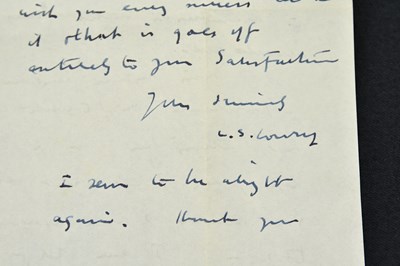 wish you every success
it & that it goes off
entirely to your Satisfaction
Yours Sincerely
L.S. Lowry
I seem to be alright
again. Thank you